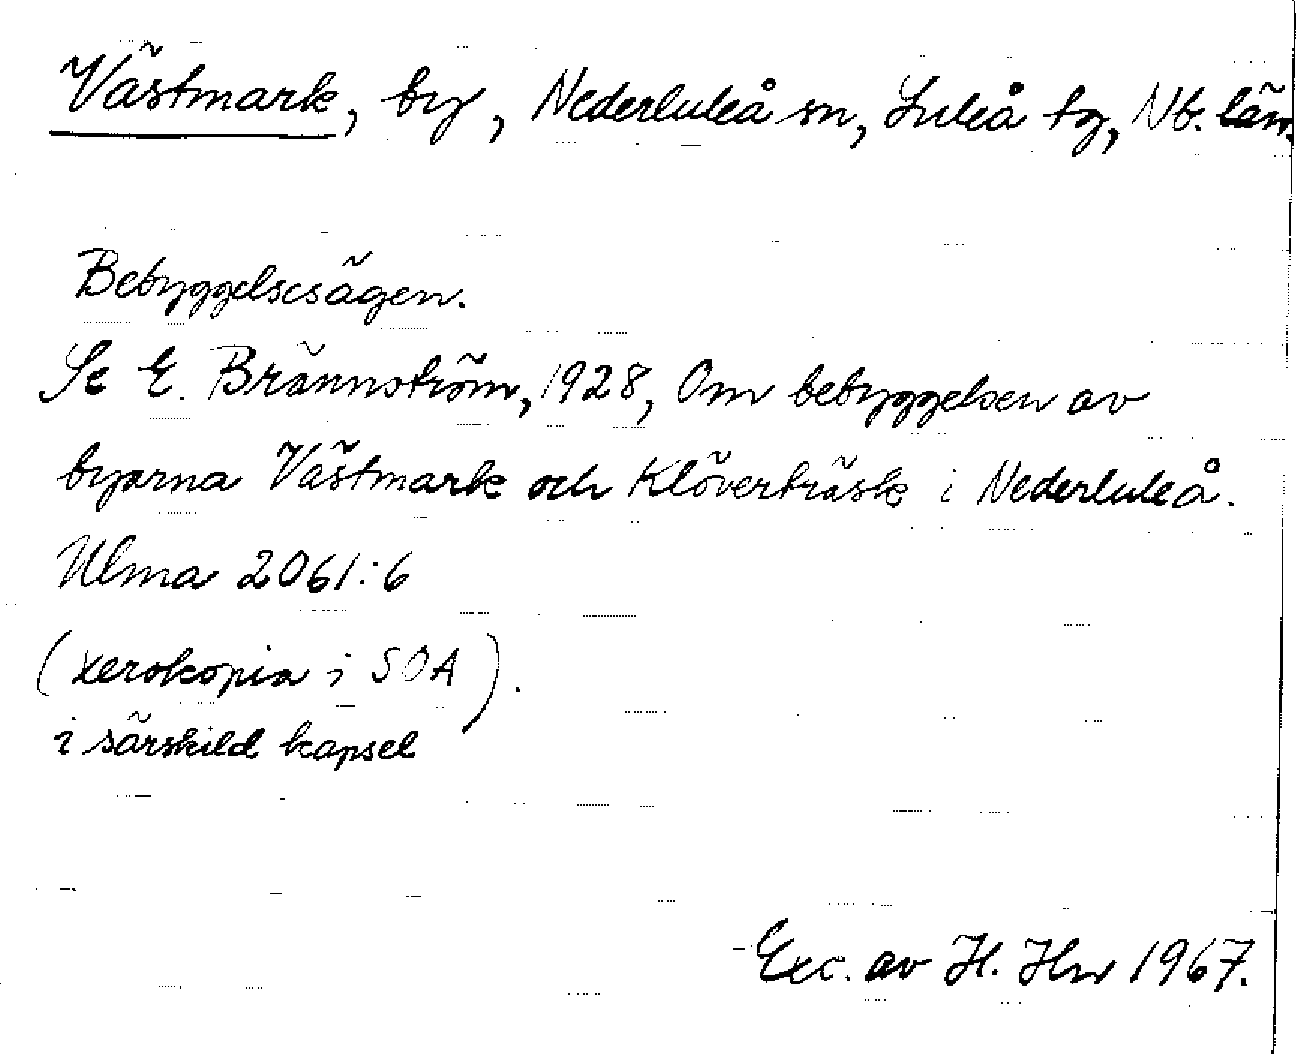 Västmark, by, Nederluleå sn, Luleå tg, Nb. län.
Bebyggelsesägen.
Se E. Brännström, 1928, Om bebyggelsen av
byarna Västmark och Klöverträsk i Nederluleå.
Ulma 2061:6
(xerokopia i SOA).
i särskild kapsel
Exc. av H. Hn 1967.